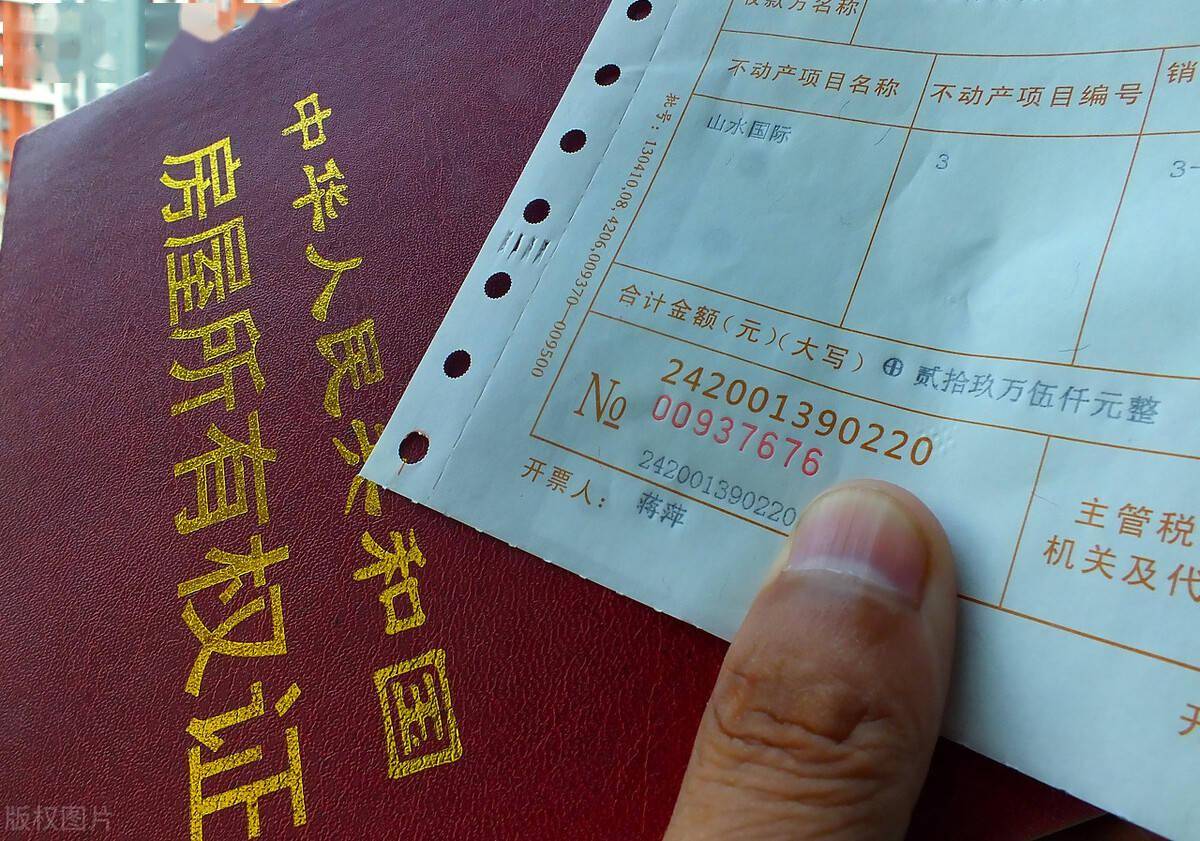 中华人民共和国
房屋所有权证
收款方名称
不动产项目名称
不动产项目编号
销
山水国际
3
3-
批号：130410.08.4206.009370—009500
合计金额（元）（大写）
⊕ 贰拾玖万伍仟元整
242001390220
№ 00937676
242001390220
开票人：
蒋萍
主管税
机关及代
版权图片